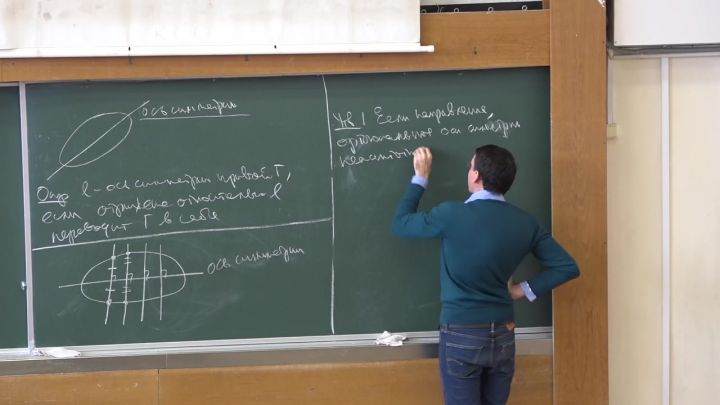 ось симметрии
Опр l - ось симметрии кривой Γ,
если отражение относительно l
переводит Γ в себя
ось симметрии
Утв 1 Если направление,
ортогональное оси симметрии